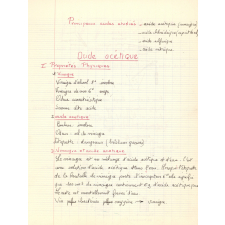 Principaux acides étudiés : - acide acétique (vinaigre)
- acide chlorhydrique
- acide sulfurique
- acide nitrique
Acide acétique
I Propriétés Physiques
1 Vinaigre
Vinaigre d'alcool 1° incolore
Vinaigre de vin 6° rouge
Odeur caractéristique
Saveur dite acide
2 acide acétique
incolore
Odeur de vinaigre
Etiquette : dangereux
3 Vinaigre et acide acétique
Le vinaigre est un mélange d'acide acétique et d'eau. C'est
une solution d'acide acétique dans l'eau.
de la bouteille de vinaigre porte l'inscription 6° cela signifie
que 100 ml de vinaigre contiennent 6 g d'acide acétique pur
Le reste est essentiellement formé d'eau
Vin + oxygène → vinaigre